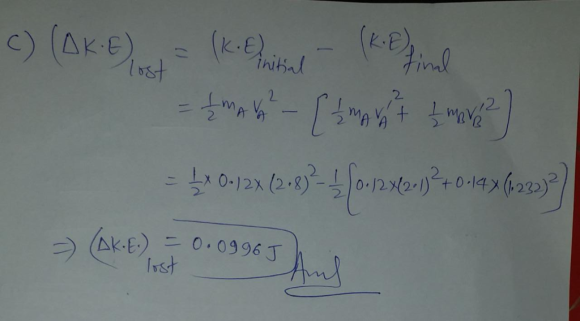 c) (ΔK·E)lost = (K·E)initial − (K·E)final
= ½ mA VA² − [½ mA VA'² + ½ mB VB'²]
= ½ × 0.12 × (2.8)² − ½ [0.12 × (2.1)² + 0.14 × (1.232)²]
⇒ (ΔK.E.)lost = 0.0996 J Ans